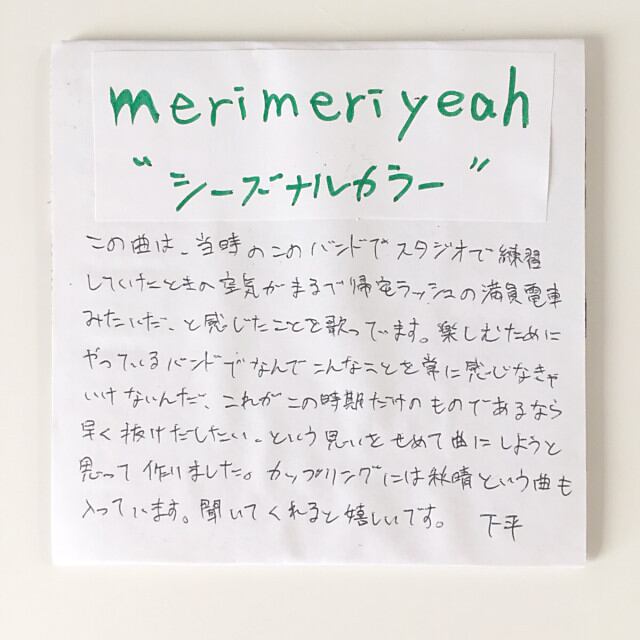 merimeri yeah
“シーズナルカラー”
この曲は、当時のこのバンドでスタジオで練習
していたときの空気がまるで帰宅ラッシュの満員電車
みたいだ、と感じたことを歌っています。楽しむために
やっているバンドでなんでこんなことを常に感じなきゃ
いけないんだ、これがこの時期だけのものであるなら
早く抜けだしたい、という思いをせめて曲にしようと
思って作りました。カップリングには秋晴という曲も
入っています。聞いてくれると嬉しいです。 下平